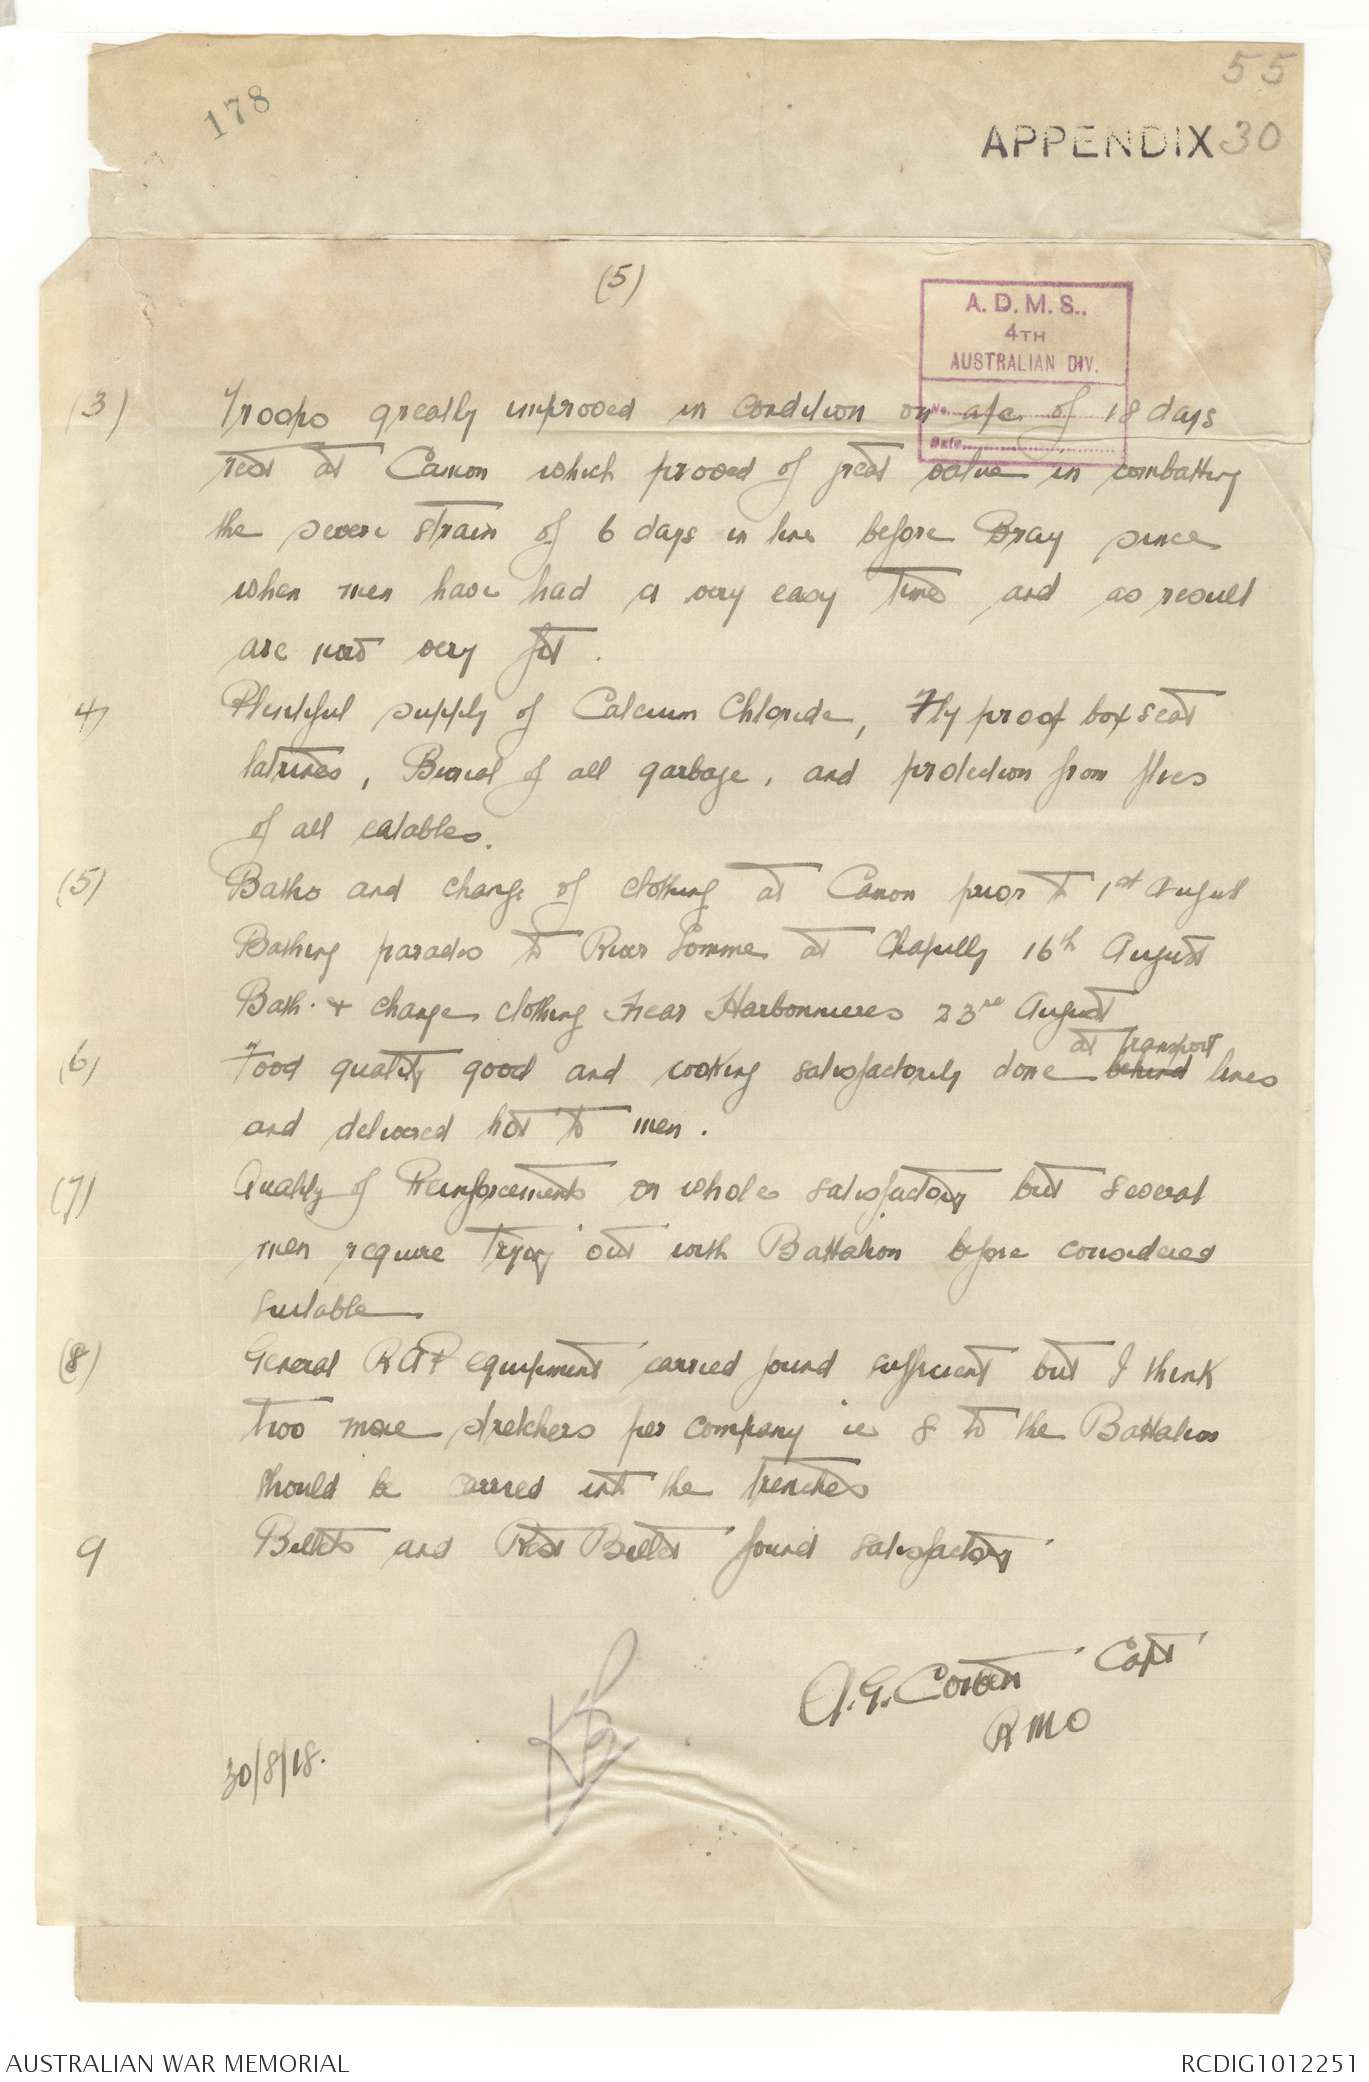 55
178
APPENDIX 30
(5)
A.D.M.S.,
4TH
AUSTRALIAN DIV.
No.
Date
(3) Troops greatly improved in condition on a/c of 18 days
rest at Camon which proved of great value in combatting
the severe strain of 6 days in line before Bray since
when men have had a very easy time and as result
are now very fit.
4) Plentiful supply of Calcium Chloride, Fly proof box seat
latrines, Burial of all garbage, and protection from flies
of all eatables.
(5) Baths and change of clothing at Camon prior to 1st August
Bathing parades to River Somme at Chipilly 16th August
Bath. & change clothing near Harbonnieres 23rd August
at Transport
(6) Food quality good and cooking satisfactorily done behind lines
and delivered hot to men.
(7) Quality of Reinforcements on whole satisfactory but several
men require trying out with Battalion before considered
suitable
(8) General RAP equipment carried found sufficient but I think
two more stretchers per company ie 8 to the Battalion
should be carried into the trenches
9 Billets and Rest Billet found satisfactory
A.G. Capt
RMO
30/8/18.
AUSTRALIAN WAR MEMORIAL
RCDIG1012251